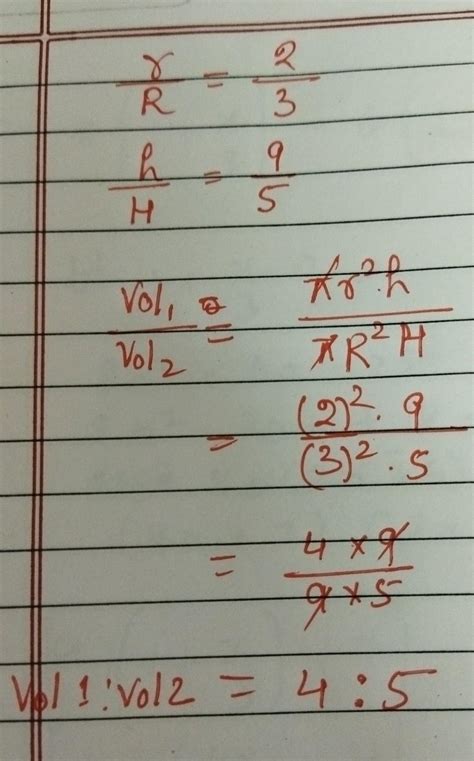 r/R = 2/3
h/H = 9/5
Vol₁/Vol₂ = πr².h/πR²H
= (2)².9/(3)².5
= 4×9/9×5
Vol 1:Vol2 = 4:5